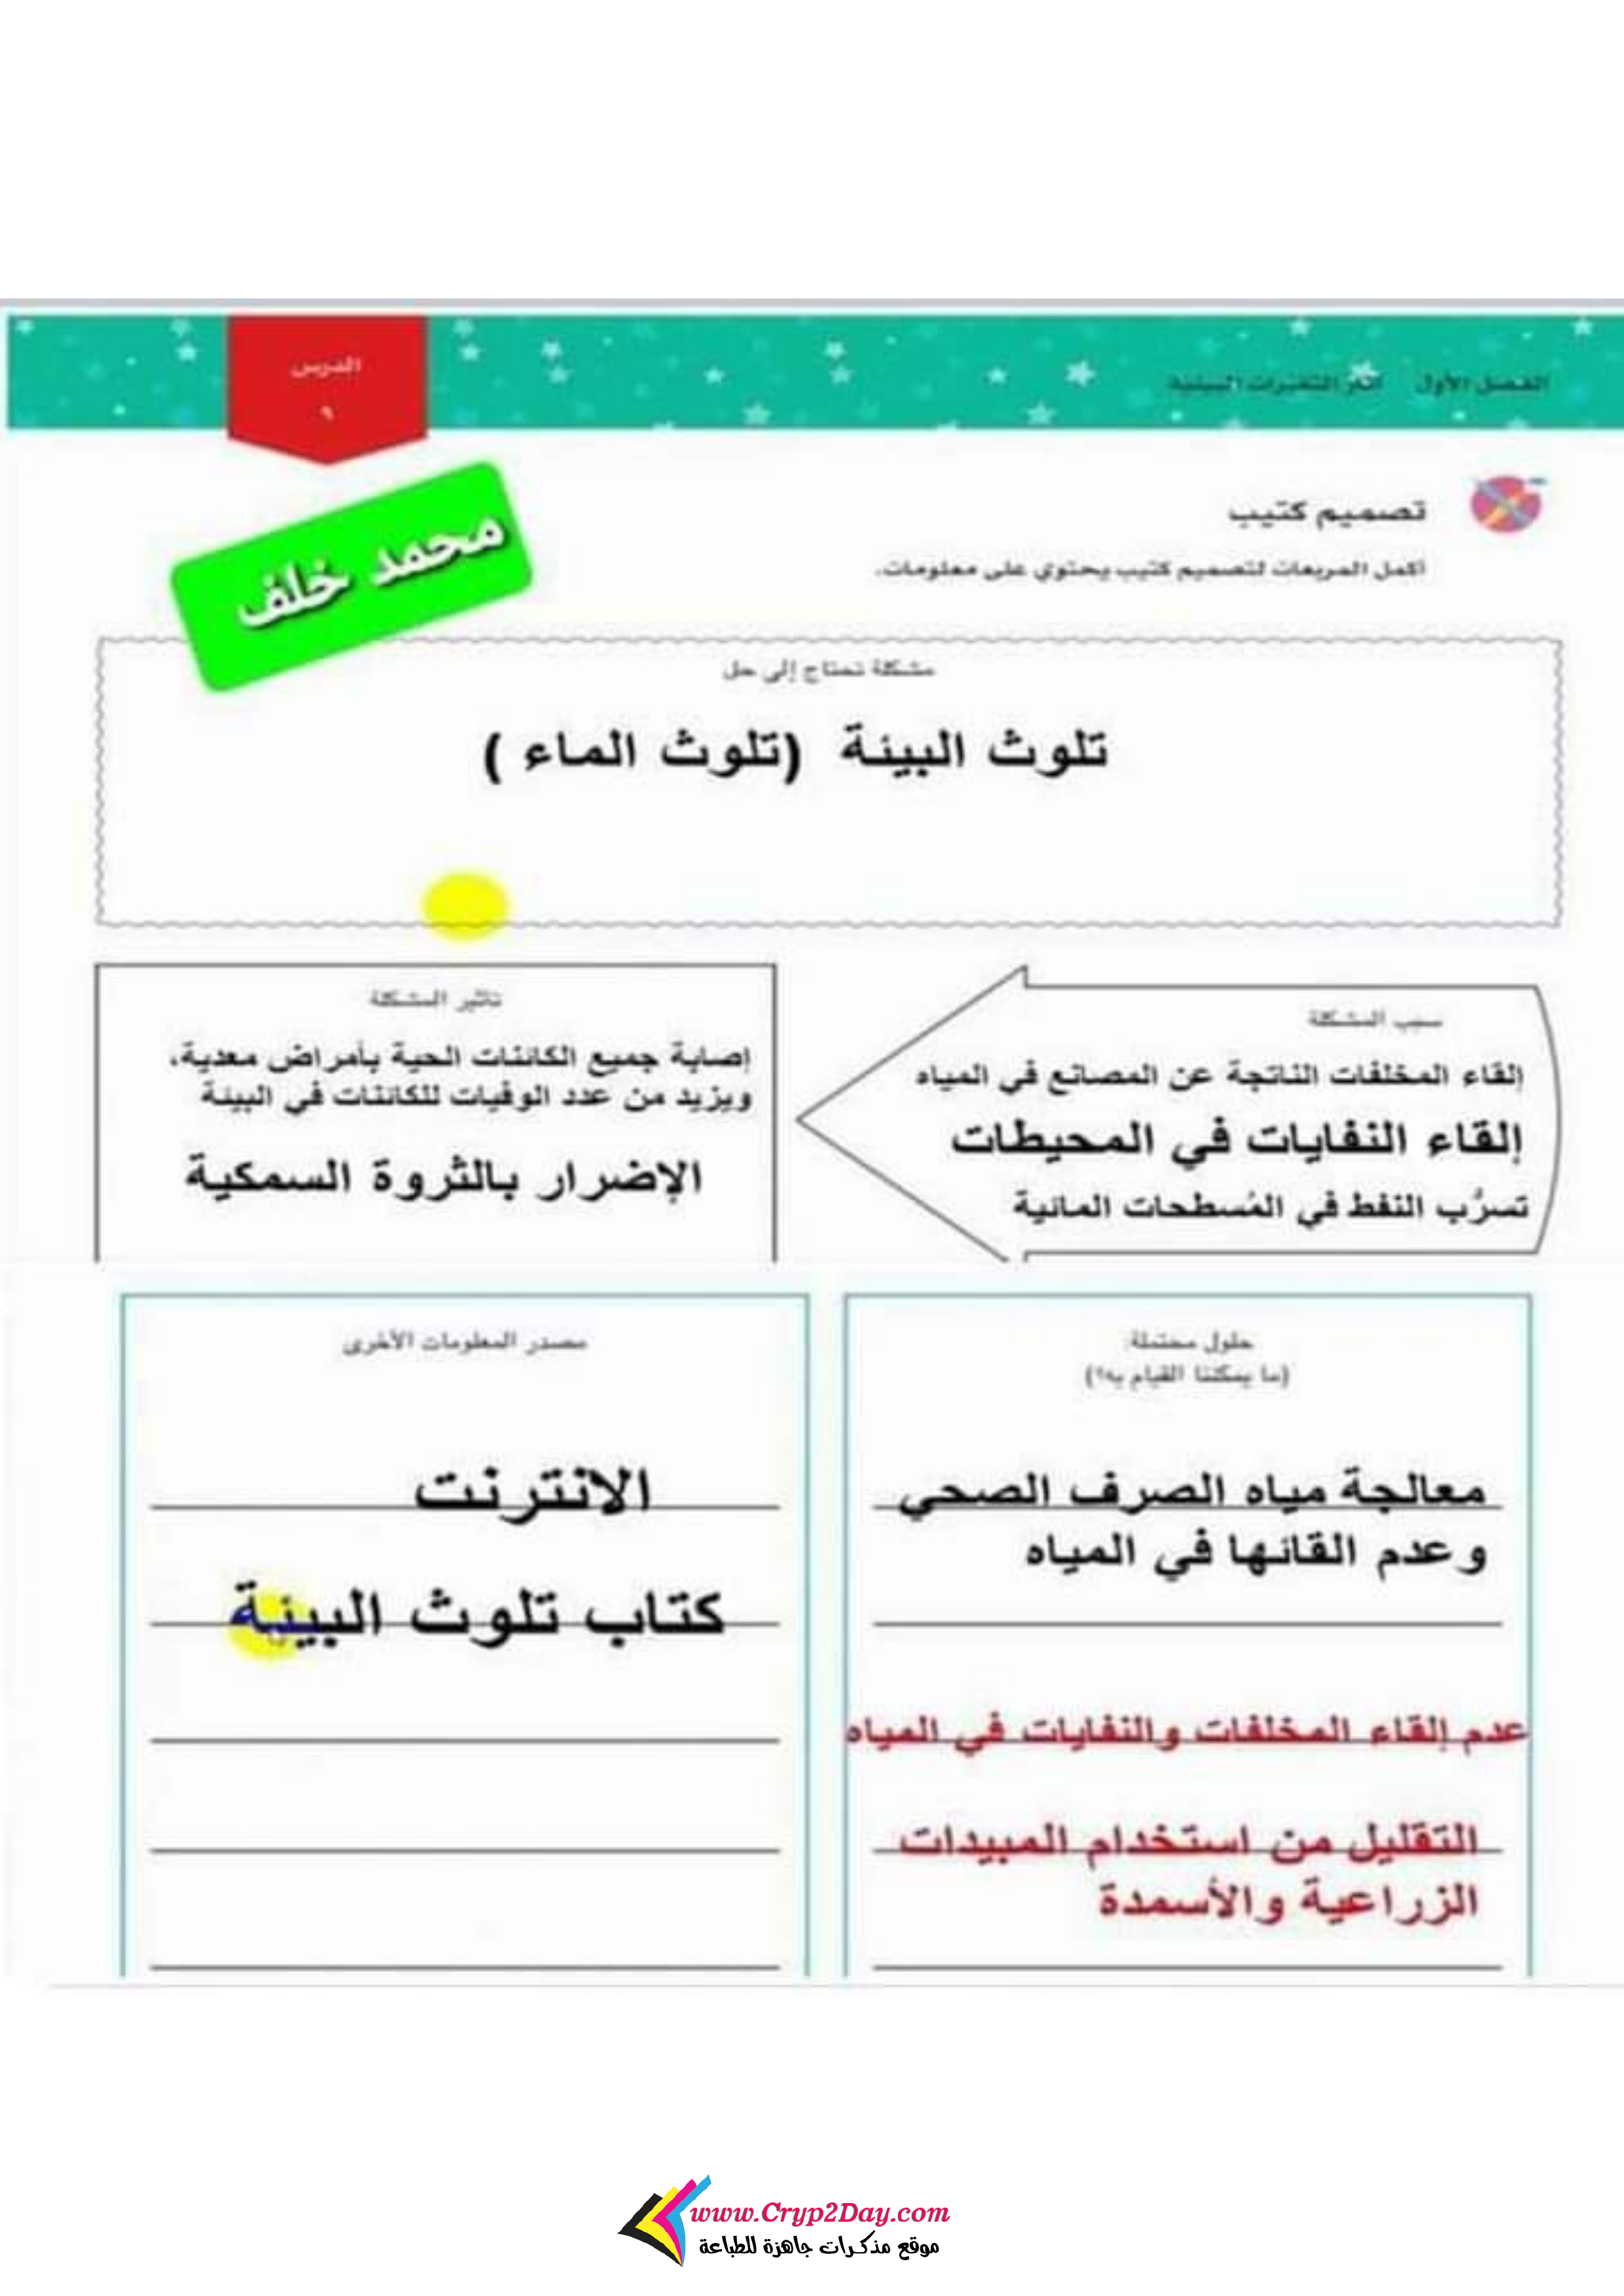 الفصل الأول أثر التغيرات البيئية
الدرس
٩
تصميم كتيب
أكمل المربعات لتصميم كتيب يحتوي على معلومات.
محمد خلف
مشكلة تحتاج إلى حل
تلوث البيئة (تلوث الماء )
سبب المشكلة
إلقاء المخلفات الناتجة عن المصانع في المياه
إلقاء النفايات في المحيطات
تسرُّب النفط في المُسطحات المائية
تأثير المشكلة
إصابة جميع الكائنات الحية بأمراض معدية،
ويزيد من عدد الوفيات للكائنات في البيئة
الإضرار بالثروة السمكية
حلول محتملة:
(ما يمكننا القيام به؟)
معالجة مياه الصرف الصحي
وعدم القائها في المياه
عدم إلقاء المخلفات والنفايات في المياه
التقليل من استخدام المبيدات
الزراعية والأسمدة
مصدر المعلومات الأخرى
الانترنت
كتاب تلوث البيئة
www.Cryp2Day.com
موقع مذكرات جاهزة للطباعة